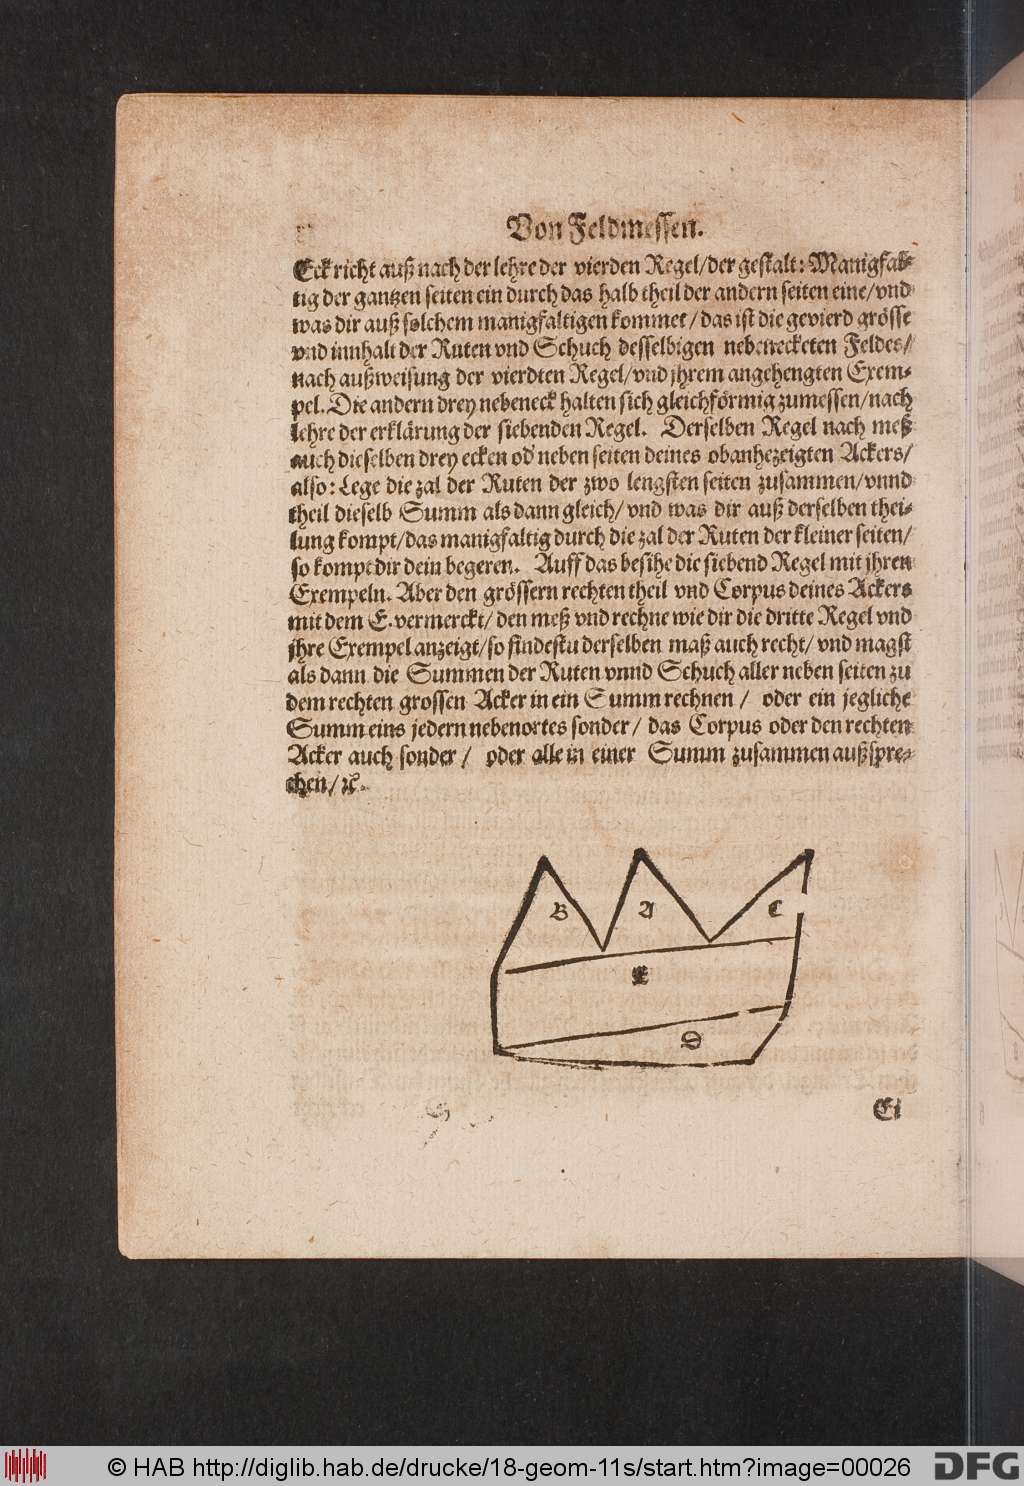 Von Feldmessen.
Eck richt auß nach der lehre der vierden Regel/der gestalt: Manigfal-
tig der gantzen seiten ein durch das halb theil der andern seiten eine/vnd
was dir auß solchem manigfaltigen kommet/das ist die gevierd grösse
vnd innhalt der Ruten vnd Schuch desselbigen nebenecketen Feldes/
nach außweisung der vierdten Regel/vnd jhrem angehengten Exem-
pel. Die andern drey nebeneck halten sich gleichförmig zumessen/nach
lehre der erklärung der siebenden Regel. Derselben Regel nach meß
auch dieselben drey ecken od' neben seiten deines obanhezeigten Ackers/
also: Lege die zal der Ruten der zwo lengsten seiten zusammen/vnnd
theil dieselb Summ als dann gleich/vnd was dir auß derselben thei-
lung kompt/das manigfaltig durch die zal der Ruten der kleiner seiten/
so kompt dir dein begeren. Auff das besihe die siebend Regel mit jhren
Exempeln. Aber den grössern rechten theil vnd Corpus deines Ackers
mit dem E. vermerckt/den meß vnd rechne wie dir die dritte Regel vnd
jhre Exempel anzeigt/so findestu derselben maß auch recht/vnd magst
als dann die Summen der Ruten vnnd Schuch aller neben seiten zu
dem rechten grossen Acker in ein Summ rechnen/ oder ein jegliche
Summ eins jedern nebenortes sonder/das Corpus oder den rechten
Acker auch sonder/ oder alle in einer Summ zusammen außspre-
chen/ꝛc.
B A C
E
D
Ei
© HAB http://diglib.hab.de/drucke/18-geom-11s/start.htm?image=00026
DFG